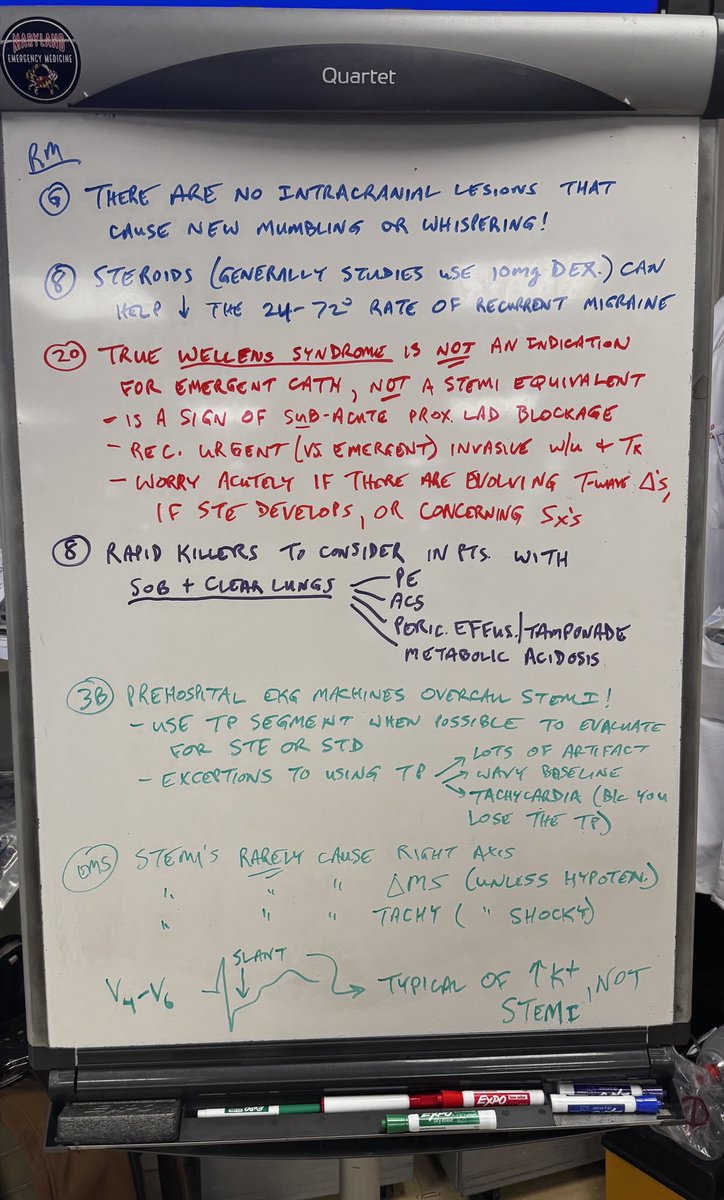 MARYLAND
EMERGENCY MEDICINE
Quartet
RM
6 THERE ARE NO INTRACRANIAL LESIONS THAT
CAUSE NEW MUMBLING OR WHISPERING!
8 STEROIDS (GENERALLY STUDIES USE 10mg DEX.) CAN
HELP ↓ THE 24-72° RATE OF RECURRENT MIGRAINE
20 TRUE WELLENS SYNDROME IS NOT AN INDICATION
FOR EMERGENT CATH, NOT A STEMI EQUIVALENT
- IS A SIGN OF SUB-ACUTE PROX. LAD BLOCKAGE
- REC. URGENT (VS. EMERGENT) INVASIVE W/U + Tx
- WORRY ACUTELY IF THERE ARE EVOLVING T-WAVE Δ's,
IF STE DEVELOPS, OR CONCERNING Sx's
8 RAPID KILLERS TO CONSIDER IN PTS. WITH
SOB + CLEAR LUNGS
PE
ACS
PERIC. EFFUS./TAMPONADE
METABOLIC ACIDOSIS
3B PREHOSPITAL EKG MACHINES OVERCALL STEMI!
- USE TP SEGMENT WHEN POSSIBLE TO EVALUATE
FOR STE OR STD
- EXCEPTIONS TO USING TP
LOTS OF ARTIFACT
WAVY BASELINE
TACHYCARDIA (B/C YOU
LOSE THE TP)
EMS STEMI'S RARELY CAUSE RIGHT AXIS
" " " ΔMS (UNLESS HYPOTEN.)
" " " TACHY ( " SHOCKY)
V4-V6
SLANT
TYPICAL OF ↑K+, NOT
STEMI
EXPO
EXPO